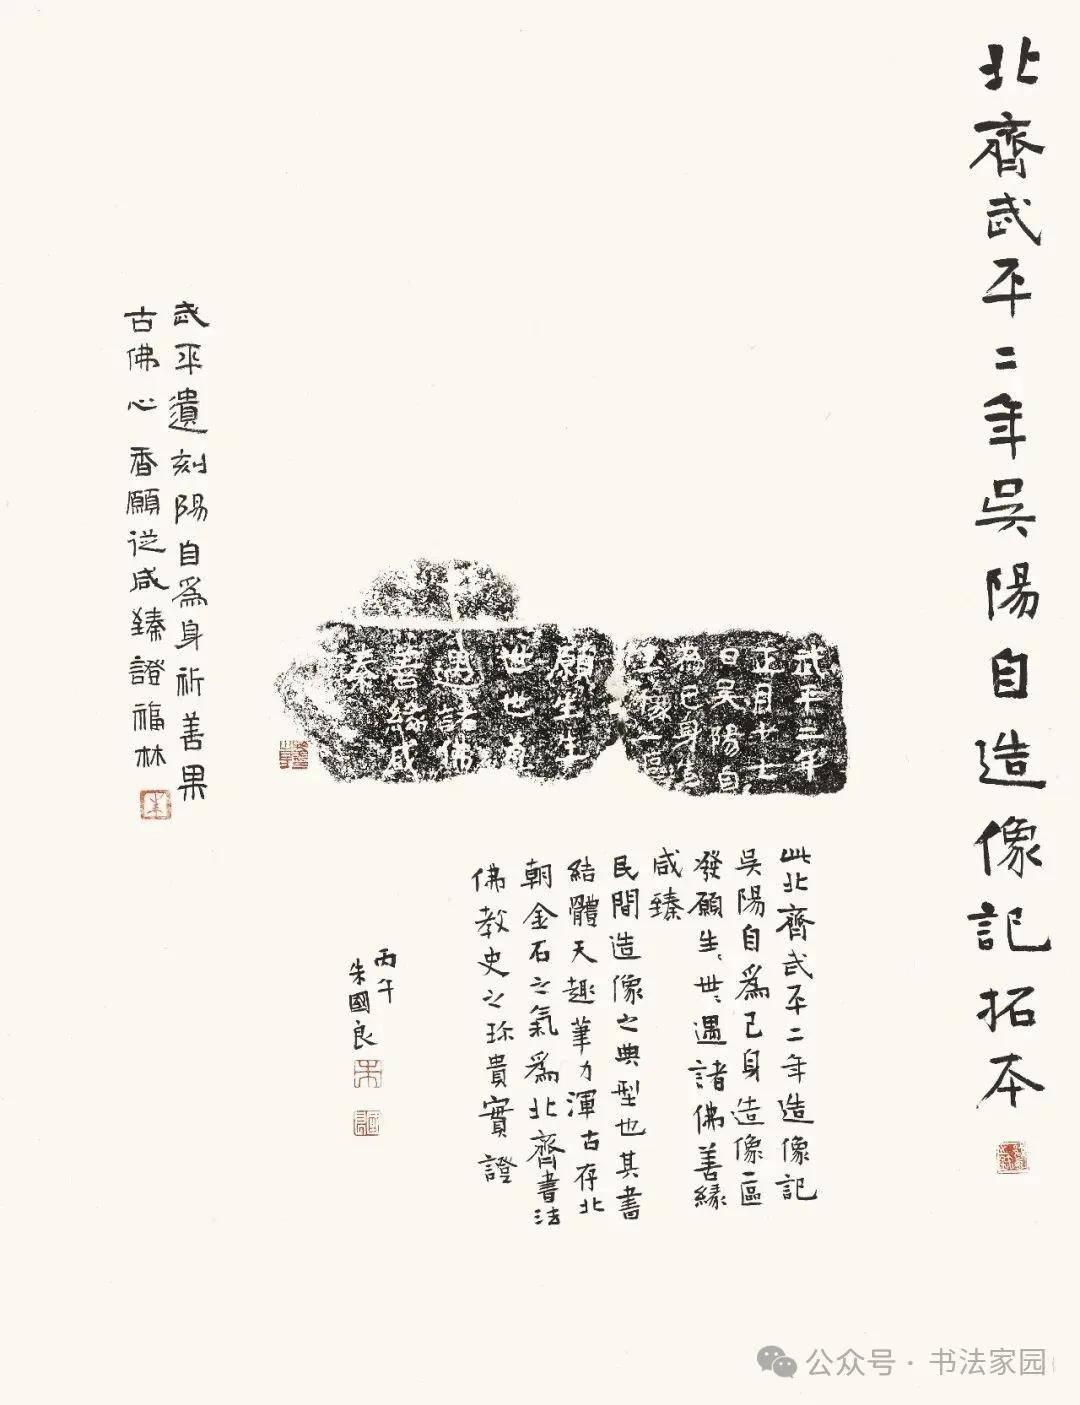 北齊武平二年吳陽自造像記拓本
武平二年
正月十
日吳陽自
為己身造
像一區
願生生
世世
遇諸佛
善緣咸
臻
此北齊武平二年造像記
吳陽自爲己身造像一區
發願生〻世〻遇諸佛善緣
咸臻
民間造像之典型也其書
結體天趣筆力渾古存北
朝金石之氣爲北齊書法
佛教史之珍貴實證
丙午
朱國良
武平遺刻陽自爲身祈善果
古佛心香願從咸臻證福林
公众号 · 书法家园